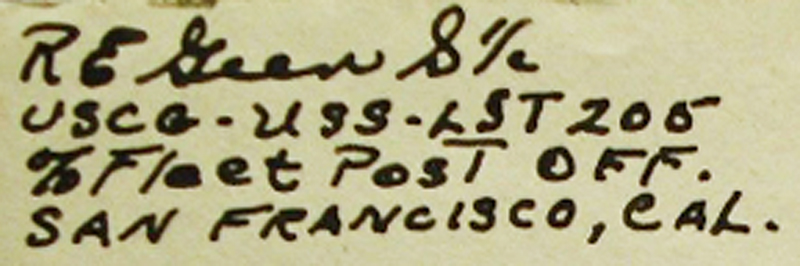 RE Geen S 1/c
USCG-USS-LST 205
% Fleet Post OFF.
SAN FRANCISCO, CAL.